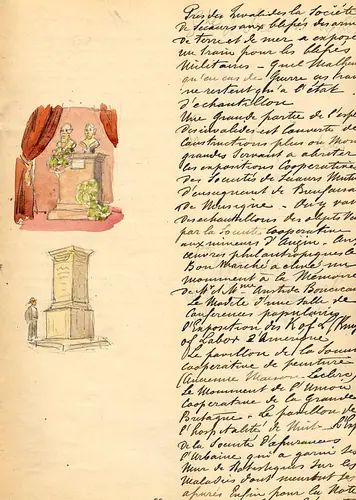 Près des Invalides la Société
de Secours aux blessés des armées
de terre et de mer a exposé
un train pour les blessés
Militaires – quel Malheur
qu'en cas de Guerre ces trains
ne restent qu'à l'état
d'échantillon
Une Grande partie de l'espl
des invalides est couverte de
Constructions plus ou Moins
grandes Servant à abriter
les expositions Coopératives
des Sociétés de Secours Mutuels
d'enseignement de Bienfaisance
de Musique – On y voit
des échantillons des objets
par la Société Coopérative
aux mineurs d'Anzin – Aux
œuvres philantropiques le
Bon Marché a élevé un
monument à la Mémoire
de Mr & Mme Aristide Boucicaut
Le Modèle d'une Salle de
Conférences populaires
l'Exposition des K of L (Knig
of Labor d'Amérique
Le pavillon de la Société
Coopérative de peinture
(Ancienne Maison Leclerc)
le Monument de l'Union
Coopérative de la Grande
Bretagne – Le pavillon de
l'hospitalité de Nuit – l'Ex
de la Société d'assurances
l'Urbaine qui a garni ses
Murs de Statistiques Sur les
Maladies dont meurent ses
assurés Enfin pour la Note